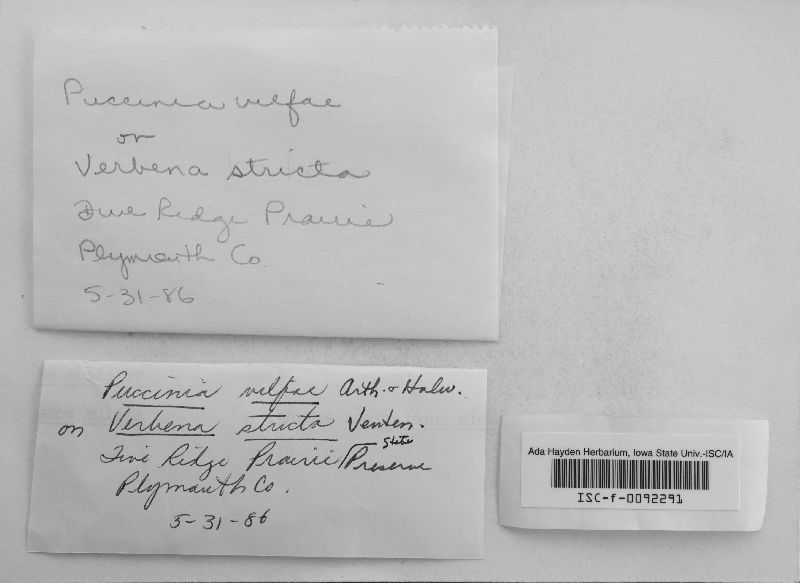 Puccinia vilfae
on
Verbena stricta
Five Ridge Prairie
Plymouth Co.
5-31-86
Puccinia vilfae Arth. & Holw.
on Verbena stricta Venten.
Five Ridge Prairie / State Preserve
Plymouth Co.
5-31-86
Ada Hayden Herbarium, Iowa State Univ.-ISC/IA
ISC-f-0092291